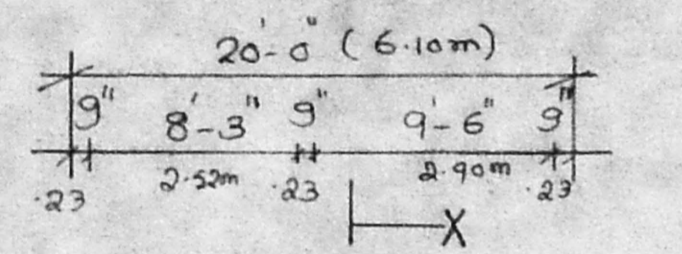 20'-0" (6.10m)
9" 8'-3" 9" 9'-6" 9"
.23 2.52m .23 2.90m .23
X